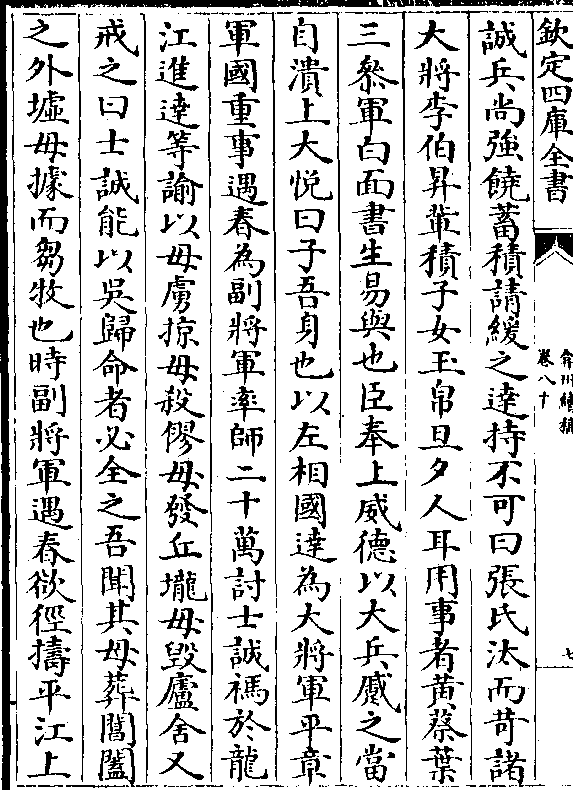 欽定四庫全書
弇州續稿
卷八十
七
誠兵尚強饒蓄積請緩之達持不可曰張氏汰而苛諸
大將李伯昇輩積子女玉帛旦夕人耳用事者黄蔡葉
三叅軍白面書生易與也臣奉上威德以大兵蹙之當
自潰上大悦曰子吾身也以左相國達為大將軍平章
軍國重事遇春為副將軍率師二十萬討士誠禡於龍
江進達等諭以毋虜掠毋殺僇毋發丘壠毋毁廬舍又
戒之曰士誠能以吳歸命者必全之吾聞其母葬閶闔
之外墟毋據而芻牧也時副將軍遇春欲徑擣平江上